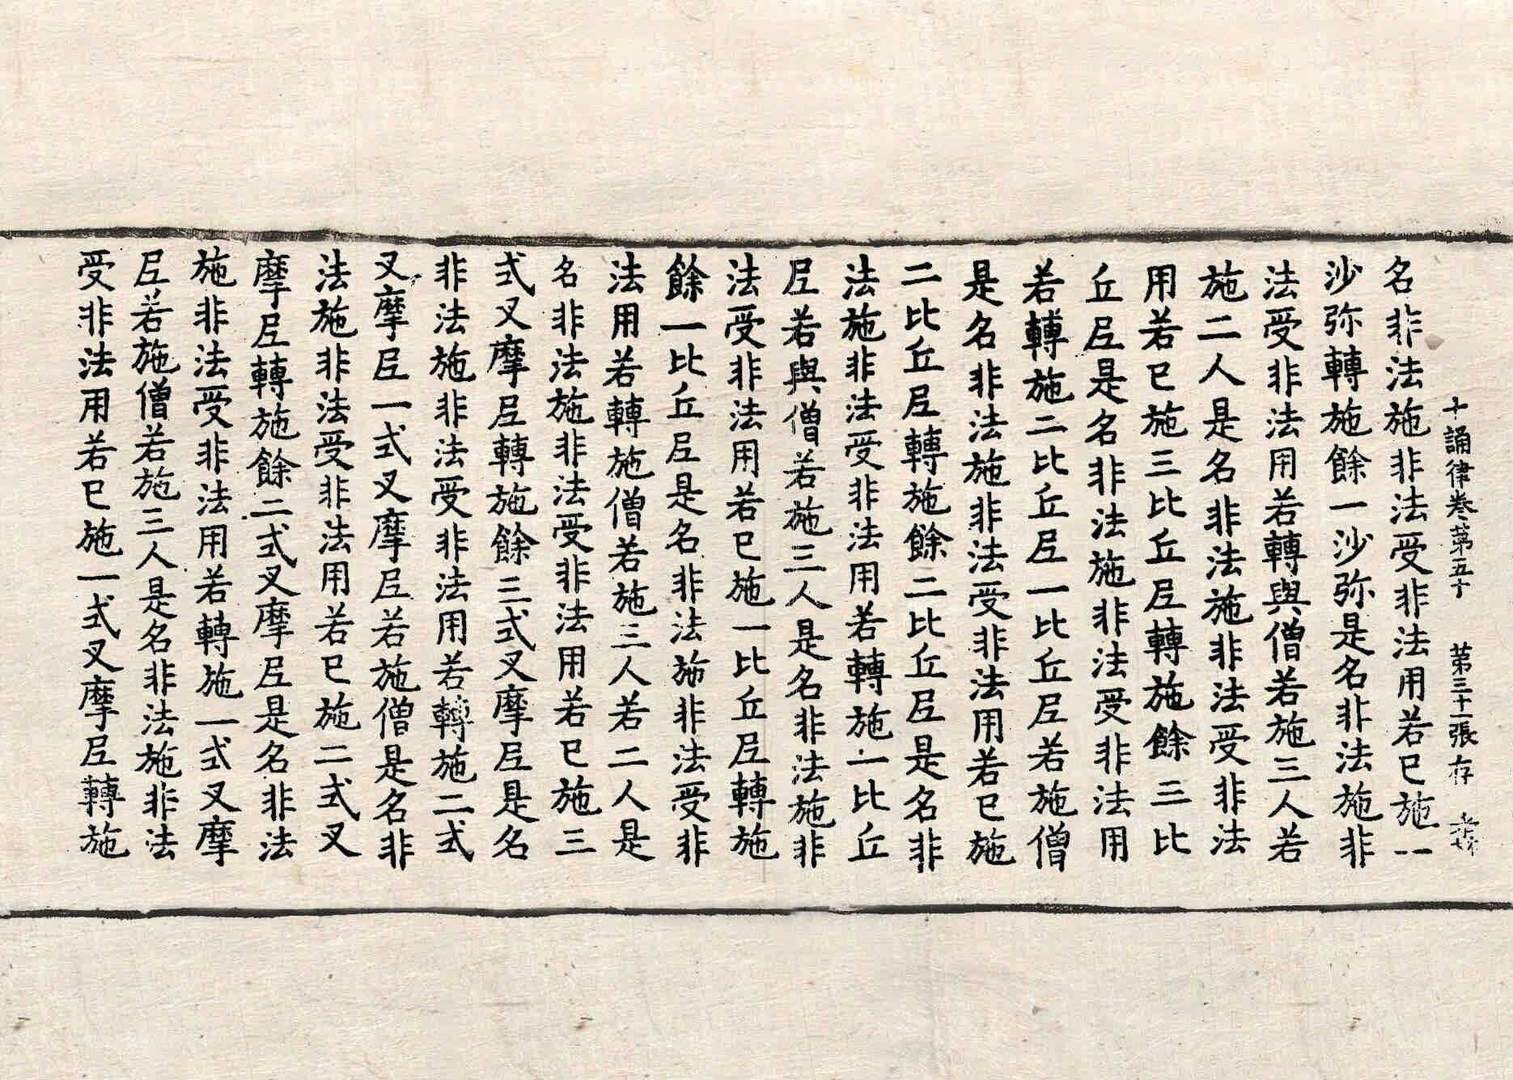 十誦律卷苐五十 第三十一張 存
名非法施非法受非法用若已施一
沙弥轉施餘一沙弥是名非法施非
法受非法用若轉與僧若施三人若
施二人是名非法施非法受非法
用若已施三比丘尼轉施餘三比
丘尼是名非法施非法受非法用
若轉施二比丘尼一比丘尼若施僧
是名非法施非法受非法用若已施
二比丘尼轉施餘二比丘尼是名非
法施非法受非法用若轉施一比丘
尼若與僧若施三人是名非法施非
法受非法用若已施一比丘尼轉施
餘一比丘尼是名非法施非法受非
法用若轉施僧若施三人若二人是
名非法施非法受非法用若已施三
式叉摩尼轉施餘三式叉摩尼是名
非法施非法受非法用若轉施二式
叉摩尼一式叉摩尼若施僧是名非
法施非法受非法用若已施二式叉
摩尼轉施餘二式叉摩尼是名非法
施非法受非法用若轉施一式叉摩
尼若施僧若施三人是名非法施非法
受非法用若已施一式叉摩尼轉施